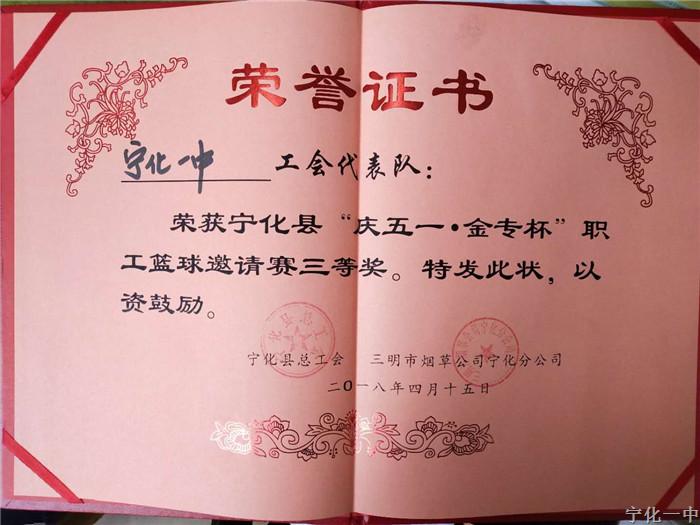 荣誉证书
宁化一中 工会代表队：
荣获宁化县“庆五一·金专杯”职
工篮球邀请赛三等奖。特发此状，以
资鼓励。
宁化县总工会 三明市烟草公司宁化分公司
二〇一八年四月十五日
宁化一中